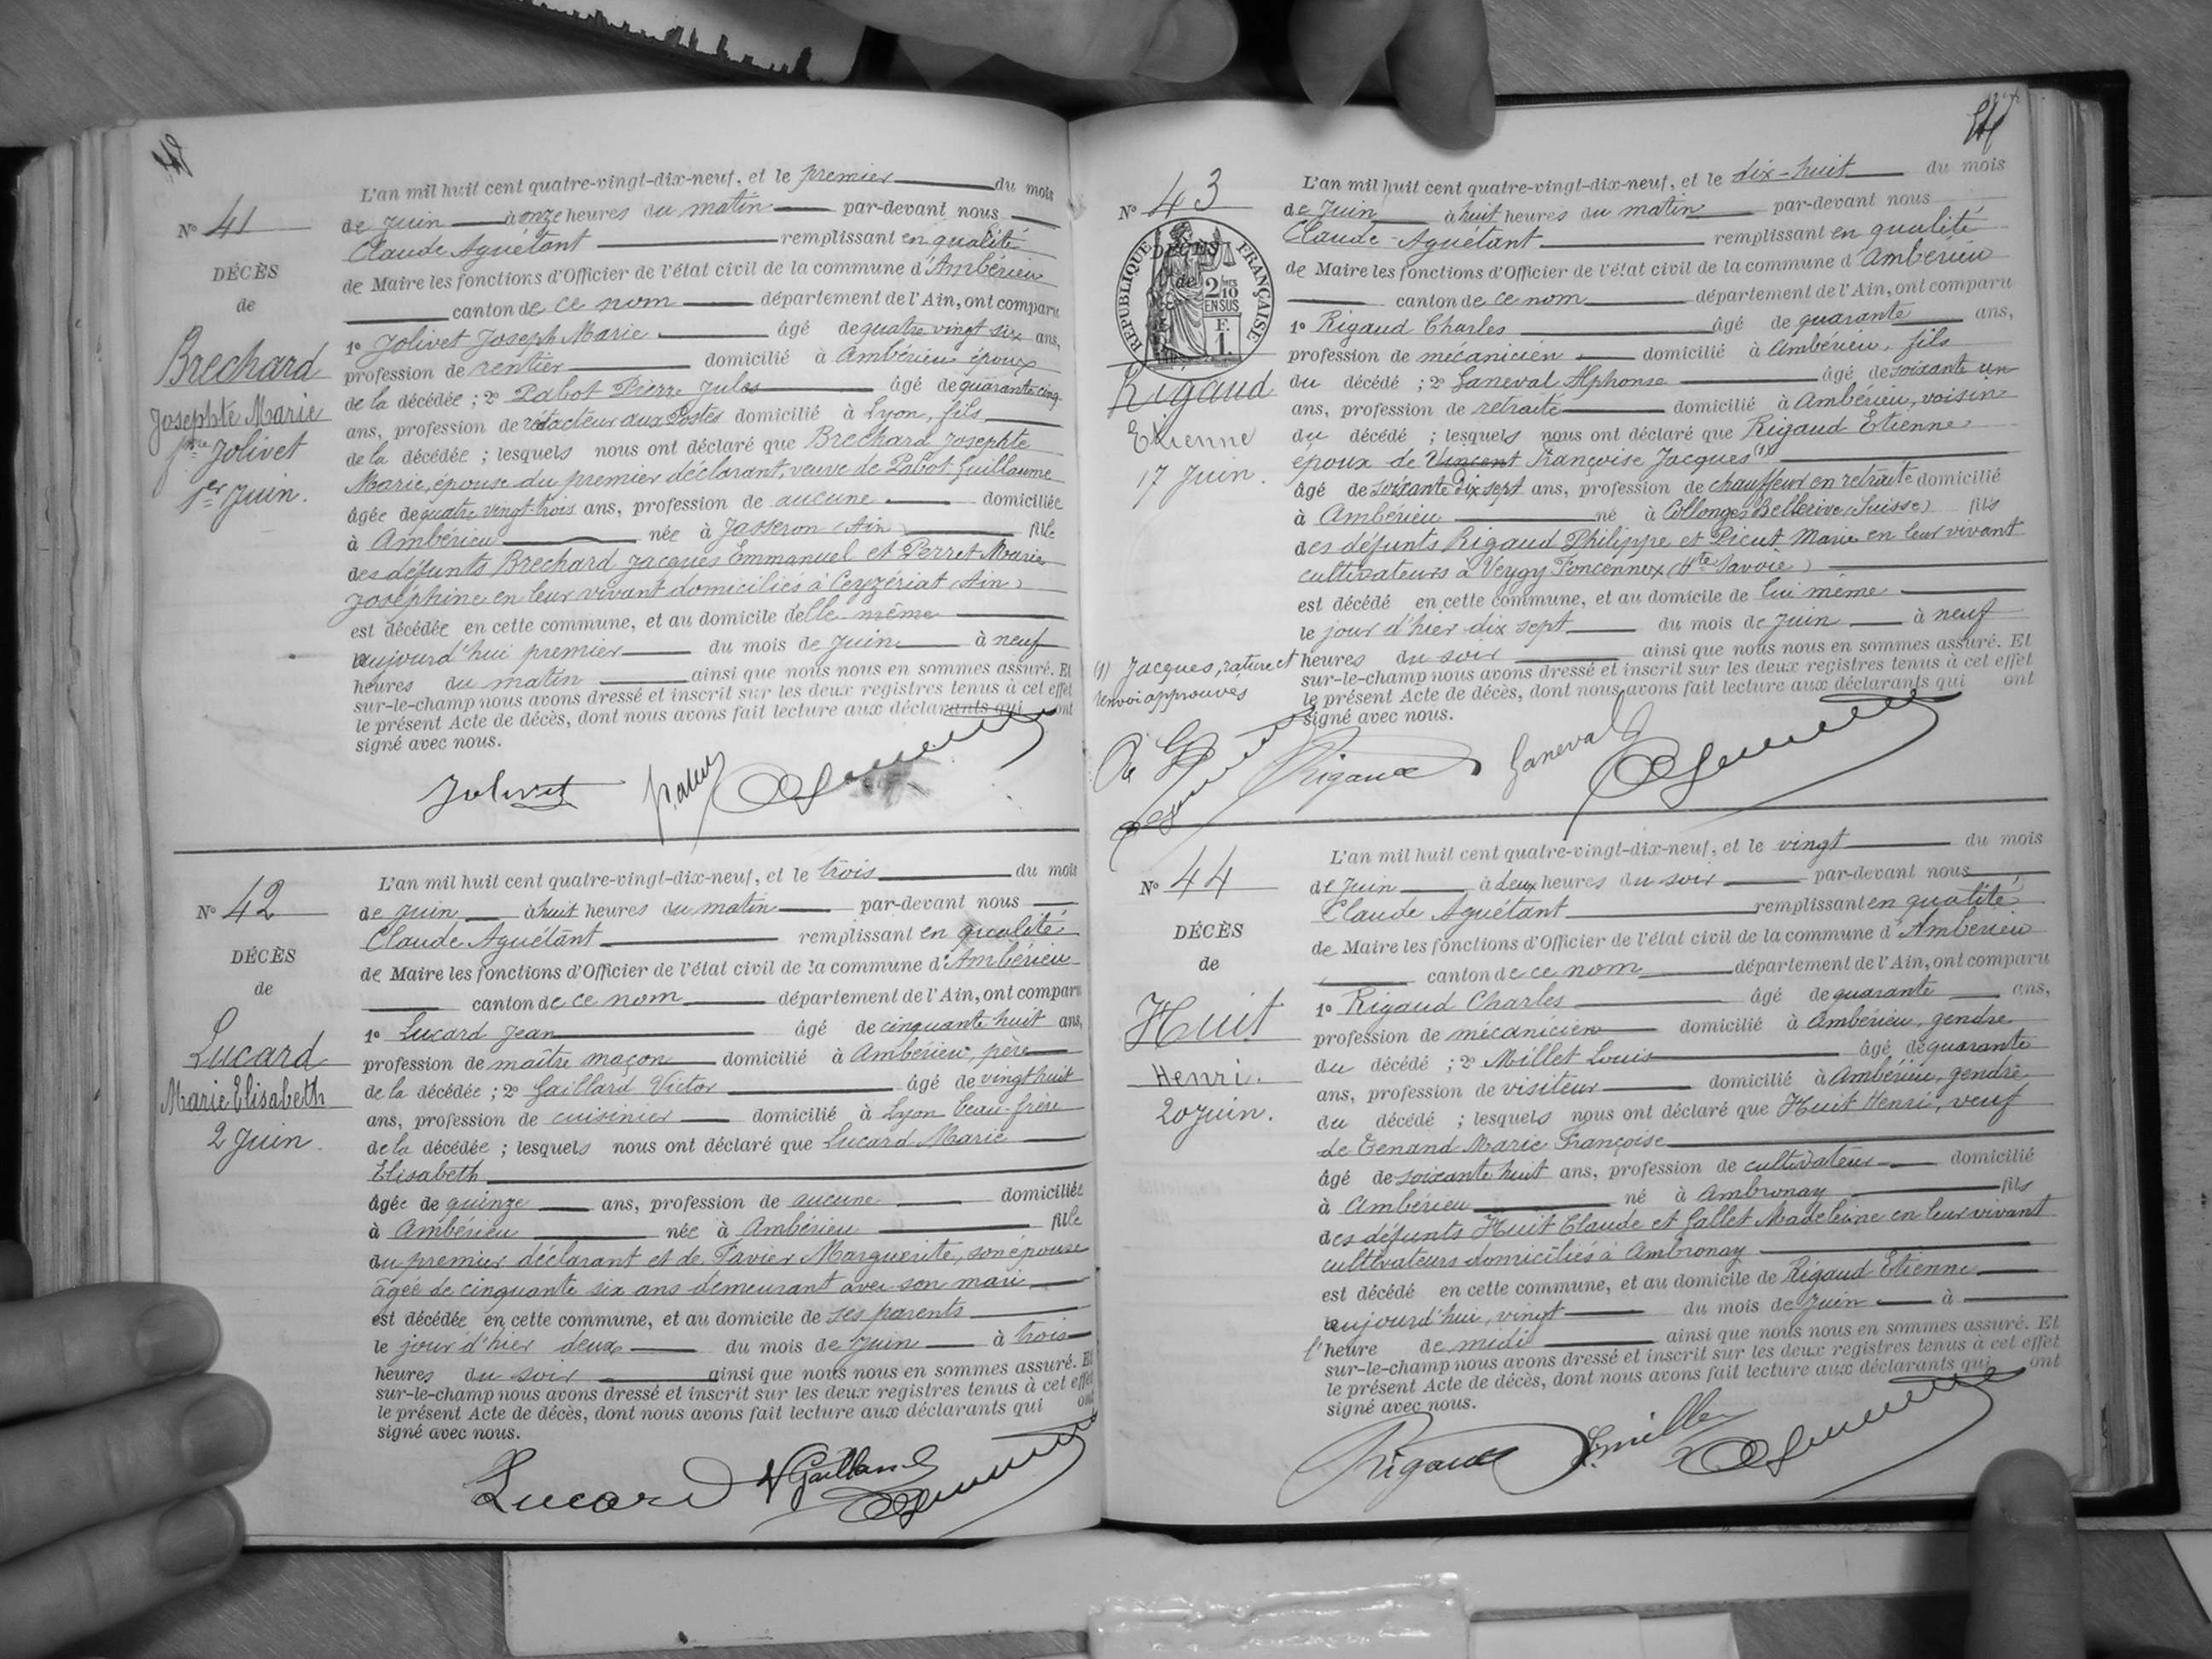 N° 41
DÉCÈS
de
Brechard
Josephte Marie
fme Jolivet
1er Juin.
L'an mil huit cent quatre-vingt-dix-neuf, et le premier du mois
de Juin à onze heures du matin par-devant nous
Claude Aguétant remplissant en qualité
de Maire les fonctions d'Officier de l'état civil de la commune d'Ambérieu
canton de ce nom département de l'Ain, ont comparu
1° Jolivet Joseph Marie âgé de quatre vingt six ans,
profession de rentier domicilié à Ambérieu époux
de la décédée ; 2° Pabot Pierre Jules âgé de quarante cinq
ans, profession de rédacteur aux Postes domicilié à Lyon, fils
de la décédée ; lesquels nous ont déclaré que Brechard Josephte
Marie, épouse du premier déclarant, veuve de Pabot Guillaume
âgée de quatre vingt-trois ans, profession de aucune domiciliée
à Ambérieu née à Jasseron (Ain) fille
des défunts Brechard Jacques Emmanuel et Perret Marie
Joséphine en leur vivant domiciliés à Ceyzériat (Ain)
est décédée en cette commune, et au domicile d'elle-même
aujourd'hui premier du mois de Juin à neuf
heures du matin ainsi que nous nous en sommes assuré. Et
sur-le-champ nous avons dressé et inscrit sur les deux registres tenus à cet effet
le présent Acte de décès, dont nous avons fait lecture aux déclarants qui ont
signé avec nous.
Jolivet
N° 42
DÉCÈS
de
Lucard
Marie Elisabeth
2 Juin.
L'an mil huit cent quatre-vingt-dix-neuf, et le trois du mois
de Juin à huit heures du matin par-devant nous
Claude Aguétant remplissant en qualité
de Maire les fonctions d'Officier de l'état civil de la commune d'Ambérieu
canton de ce nom département de l'Ain, ont comparu
1° Lucard Jean âgé de cinquante huit ans,
profession de maître maçon domicilié à Ambérieu, père
de la décédée ; 2° Gaillard Victor âgé de vingt huit
ans, profession de cuisinier domicilié à Lyon beau-frère
de la décédée ; lesquels nous ont déclaré que Lucard Marie
Elisabeth
âgée de quinze ans, profession de aucune domiciliée
à Ambérieu née à Ambérieu fille
du premier déclarant et de Favier Marguerite, son épouse
âgée de cinquante six ans demeurant avec son mari
est décédée en cette commune, et au domicile de ses parents
le jour d'hier deux du mois de Juin à trois
heures du soir ainsi que nous nous en sommes assuré. Et
sur-le-champ nous avons dressé et inscrit sur les deux registres tenus à cet effet
le présent Acte de décès, dont nous avons fait lecture aux déclarants qui ont
signé avec nous.
Lucard V Gaillard
N° 43
RÉPUBLIQUE FRANÇAISE
DÉCÈS
de
2/10
EN SUS
F.
1.
Rigaud
Etienne
17 Juin.
L'an mil huit cent quatre-vingt-dix-neuf, et le dix-huit du mois
de Juin à huit heures du matin par-devant nous
Claude Aguétant remplissant en qualité
de Maire les fonctions d'Officier de l'état civil de la commune d'Ambérieu
canton de ce nom département de l'Ain, ont comparu
1° Rigaud Charles âgé de quarante ans,
profession de mécanicien domicilié à Ambérieu, fils
du décédé ; 2° Ganeval Alphonse âgé de soixante un
ans, profession de retraité domicilié à Ambérieu, voisin
du décédé ; lesquels nous ont déclaré que Rigaud Etienne
époux de Vincent Françoise Jacques (1)
âgé de soixante dix sept ans, profession de chauffeur en retraite domicilié
à Ambérieu né à Collonges Bellerive (Suisse) fils
des défunts Rigaud Philippe et Picut Marie en leur vivant
cultivateurs à Veygy Foncennex (Hte Savoie)
est décédé en cette commune, et au domicile de lui même
le jour d'hier dix sept du mois de Juin à neuf
heures du soir ainsi que nous nous en sommes assuré. Et
sur-le-champ nous avons dressé et inscrit sur les deux registres tenus à cet effet
le présent Acte de décès, dont nous avons fait lecture aux déclarants qui ont
signé avec nous.
(1) Jacques, rature et
renvoi approuvés
Rigaud Ganeval
N° 44
DÉCÈS
de
Huit
Henri.
20 Juin.
L'an mil huit cent quatre-vingt-dix-neuf, et le vingt du mois
de Juin à deux heures du soir par-devant nous
Claude Aguétant remplissant en qualité
de Maire les fonctions d'Officier de l'état civil de la commune d'Ambérieu
canton de ce nom département de l'Ain, ont comparu
1° Rigaud Charles âgé de quarante ans,
profession de mécanicien domicilié à Ambérieu, gendre
du décédé ; 2° Millet Louis âgé de quarante
ans, profession de visiteur domicilié à Ambérieu, gendre
du décédé ; lesquels nous ont déclaré que Huit Henri, veuf
de Tenand Marie Françoise
âgé de soixante huit ans, profession de cultivateur domicilié
à Ambérieu né à Ambronay fils
des défunts Huit Claude et Gallet Madeleine en leur vivant
cultivateurs domiciliés à Ambronay
est décédé en cette commune, et au domicile de Rigaud Etienne
aujourd'hui, vingt du mois de Juin à
l'heure de midi ainsi que nous nous en sommes assuré. Et
sur-le-champ nous avons dressé et inscrit sur les deux registres tenus à cet effet
le présent Acte de décès, dont nous avons fait lecture aux déclarants qui ont
signé avec nous.
Rigaud